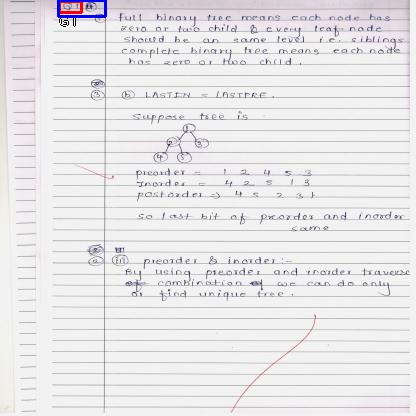 Q1
Full binary tree means each node has
zero or two child & every leaf node
should be on same level i.e. siblings
complete binary tree means each node
has zero or two child.
③ ⓑ LASTIN = LASTPRE.
Suppose tree is
1
2 3
4 5
preorder = 1 2 4 5 3
Inorder = 4 2 5 1 3
postorder => 4 5 2 3 1
so last bit of preorder and inorder
same
ⓐ (iii) preorder & inorder :-
By using preorder and inorder traverse
combination we can do only
or find unique tree.